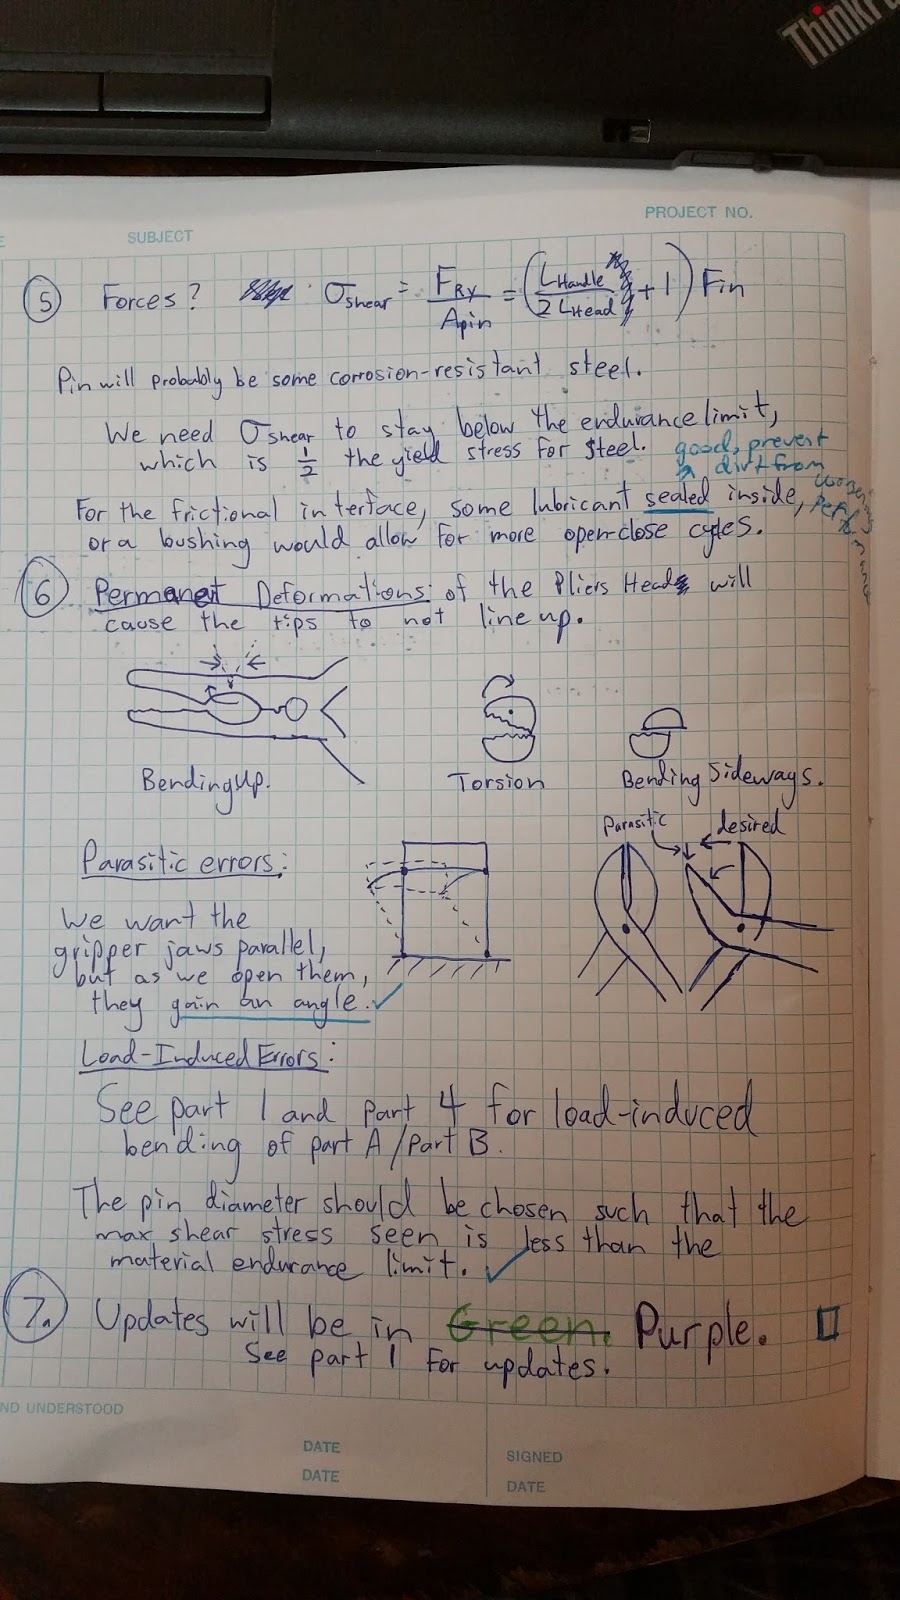 ThinkPa
PROJECT NO.
E
SUBJECT
5 Forces? σshear = FRy/Apin = (LHandle/2LHead + 1) Fin
Pin will probably be some corrosion-resistant steel.
We need σshear to stay below the endurance limit,
which is 1/2 the yield stress for steel.
good, prevent
dirt from
For the frictional interface, some lubricant sealed inside,
or a bushing would allow for more open-close cycles.
6 Permanent Deformations: of the Pliers Head will
cause the tips to not line up.
Bending Up.
Torsion
Bending Sideways.
Parasitic
desired
Parasitic errors:
We want the
gripper jaws parallel,
but as we open them,
they gain an angle. ✓
Load-Induced Errors:
See part 1 and part 4 for load-induced
bending of part A/Part B.
The pin diameter should be chosen such that the
max shear stress seen is less than the
material endurance limit. ✓
7. Updates will be in Green. Purple.
See part 1 for updates.
ND UNDERSTOOD
DATE
SIGNED
DATE
DATE